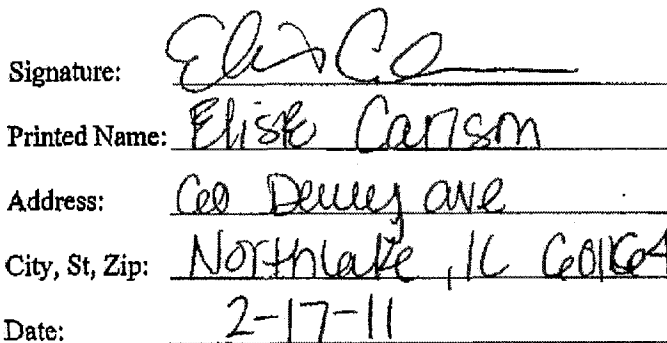 Signature: Elis Cl
Printed Name: Elise Carlson
Address: 60 Dewey ave
City, St, Zip: Northlake, IL 60164
Date: 2-17-11